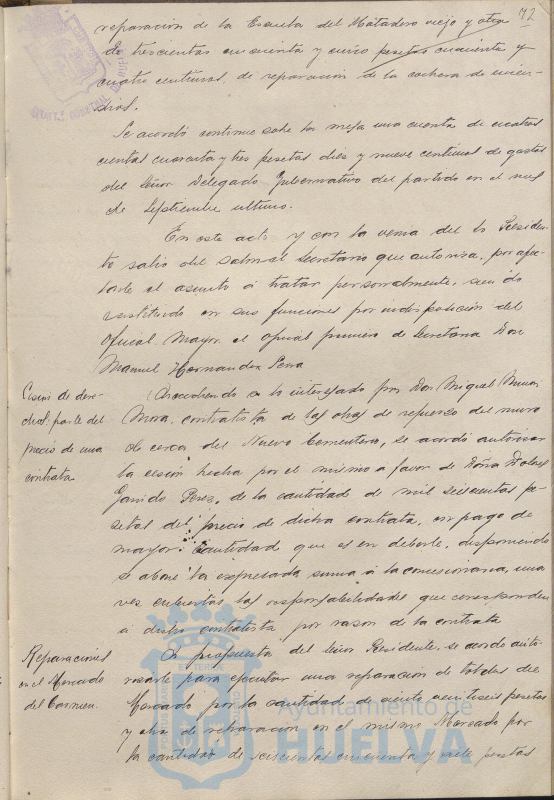 72
reparación de la Escuela del Matadero viejo y otra
de trescientas cincuenta y cinco pesetas cuarenta y
cuatro centimos, de reparación de la cochera de incen-
dios.
Se acordó continue sobre la mesa una cuenta de cuatro
cientas cuarenta y tres pesetas diez y nueve centimos de gastos
del Señor Delegado Gubernativo del partido en el mes
de Septiembre ultimo.
En este acto y con la venia del Sr Presiden-
te salio del salon el Secretario que autoriza, por afec-
tarle el asunto á tratar personalmente, siendo
sustituido en sus funciones por indisposición del
Oficial Mayor el oficial primero de Secretaria Don
Manuel Hernandez Pera
Cesion de dere-
chos: parte del
precio de una
contrata
Accediendo a lo interesado por Don Miguel
Mora, contratista de las obras de refuerzo del muro
de cerca del Nuevo Cementerio, se acordó autorizar
la cesión hecha por el mismo a favor de Doña Dolores
Garrido Perez, de la cantidad de mil seiscientas pe-
setas del precio de dicha contrata, en pago de
mayor cantidad que es en deberle, disponiendo
se abone la expresada suma á la concesionaria, una
vez cubiertas las responsabilidades que correspondan
á dicho contratista por razon de la contrata
Reparaciones
en el Mercado
del Carmen.
A propuesta del Señor Presidente, se acordó auto-
rizarle para ejecutar una reparación de toldos del
Mercado por la cantidad de ciento veintiseis pesetas
y otra de reparacion en el mismo Mercado por
la cantidad de seiscientas cincuenta y siete pesetas
Ayuntamiento de
HUELVA